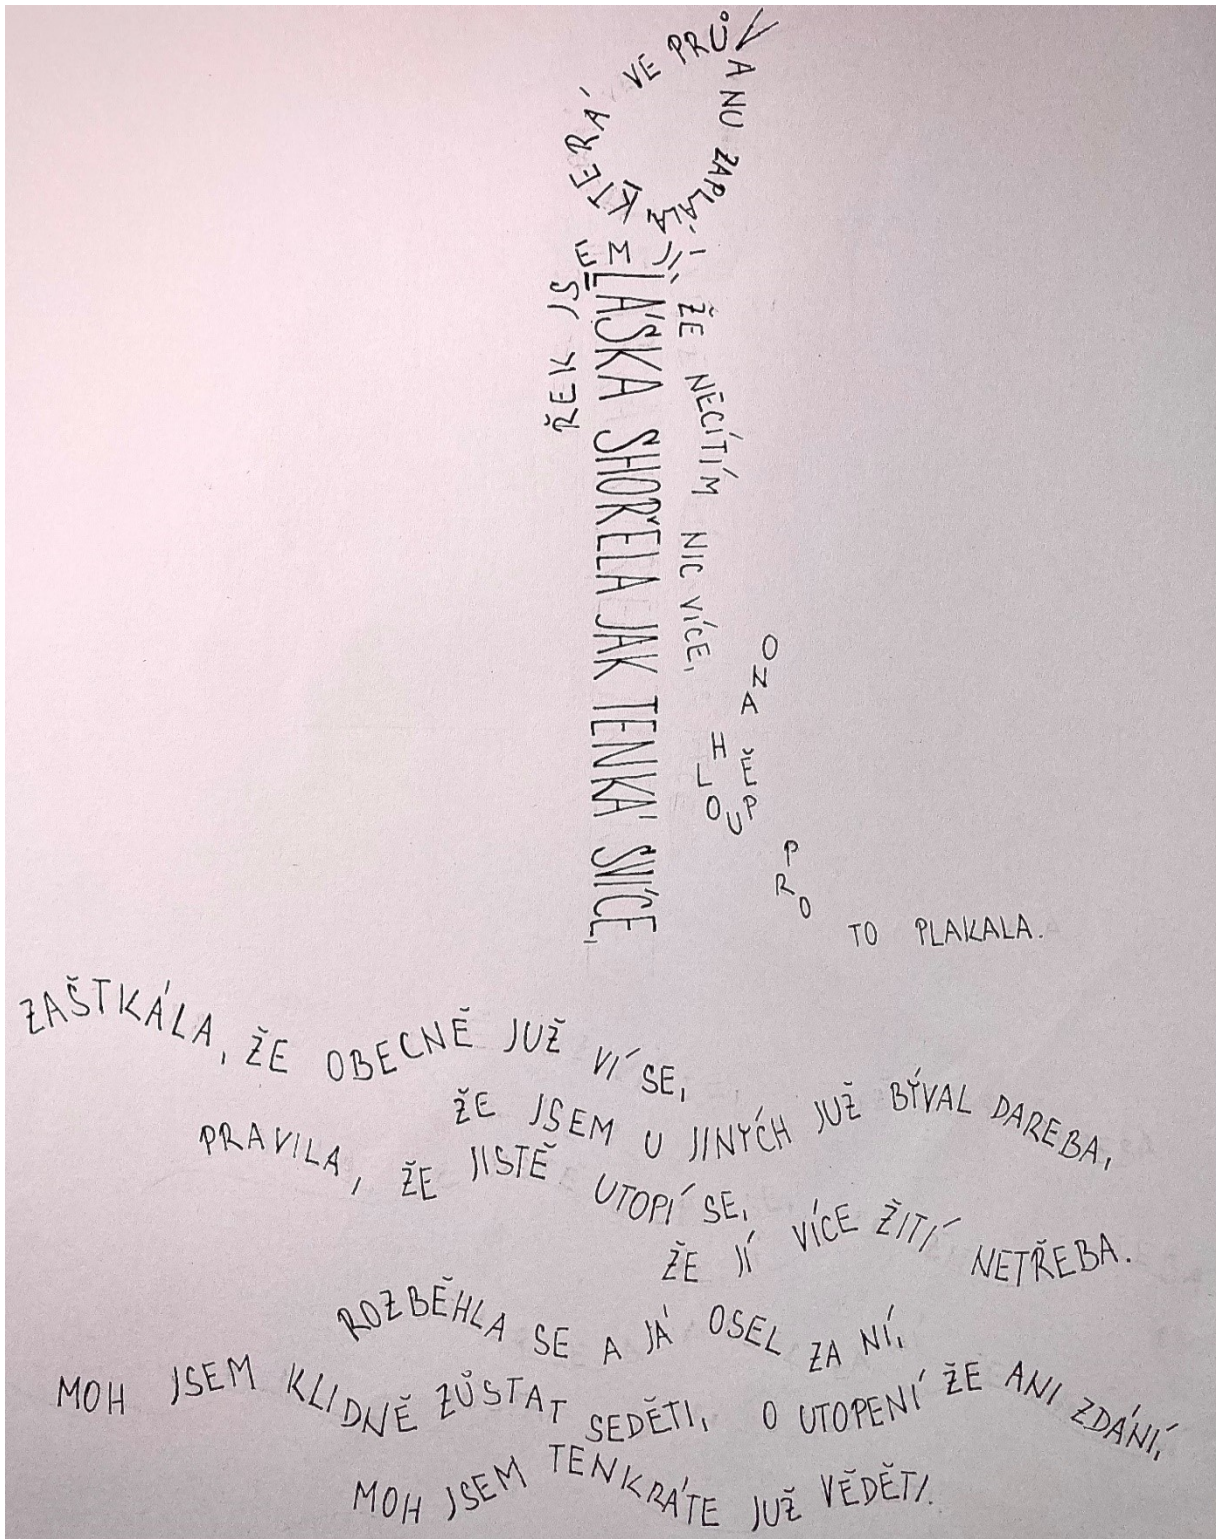 LÁSKA SHOŘELA JAK TENKÁ SVÍCE,
KTERÁ VE PRŮVANU ZAPLÁLA
ŘEK JSEM JÍ, ŽE NECÍTÍM NIC VÍCE,
ONA HLOUPĚ PRO TO PLAKALA.
ZAŠTKÁLA, ŽE OBECNĚ JUŽ VÍ SE,
ŽE JSEM U JINÝCH JUŽ BÝVAL DAREBA,
PRAVILA, ŽE JISTĚ UTOPÍ SE,
ŽE JÍ VÍCE ŽITÍ NETŘEBA.
ROZBĚHLA SE A JÁ OSEL ZA NÍ,
MOH JSEM KLIDNĚ ZŮSTAT SEDĚTI,
O UTOPENÍ ŽE ANI ZDÁNÍ,
MOH JSEM TENKRÁTE JUŽ VĚDĚTI.